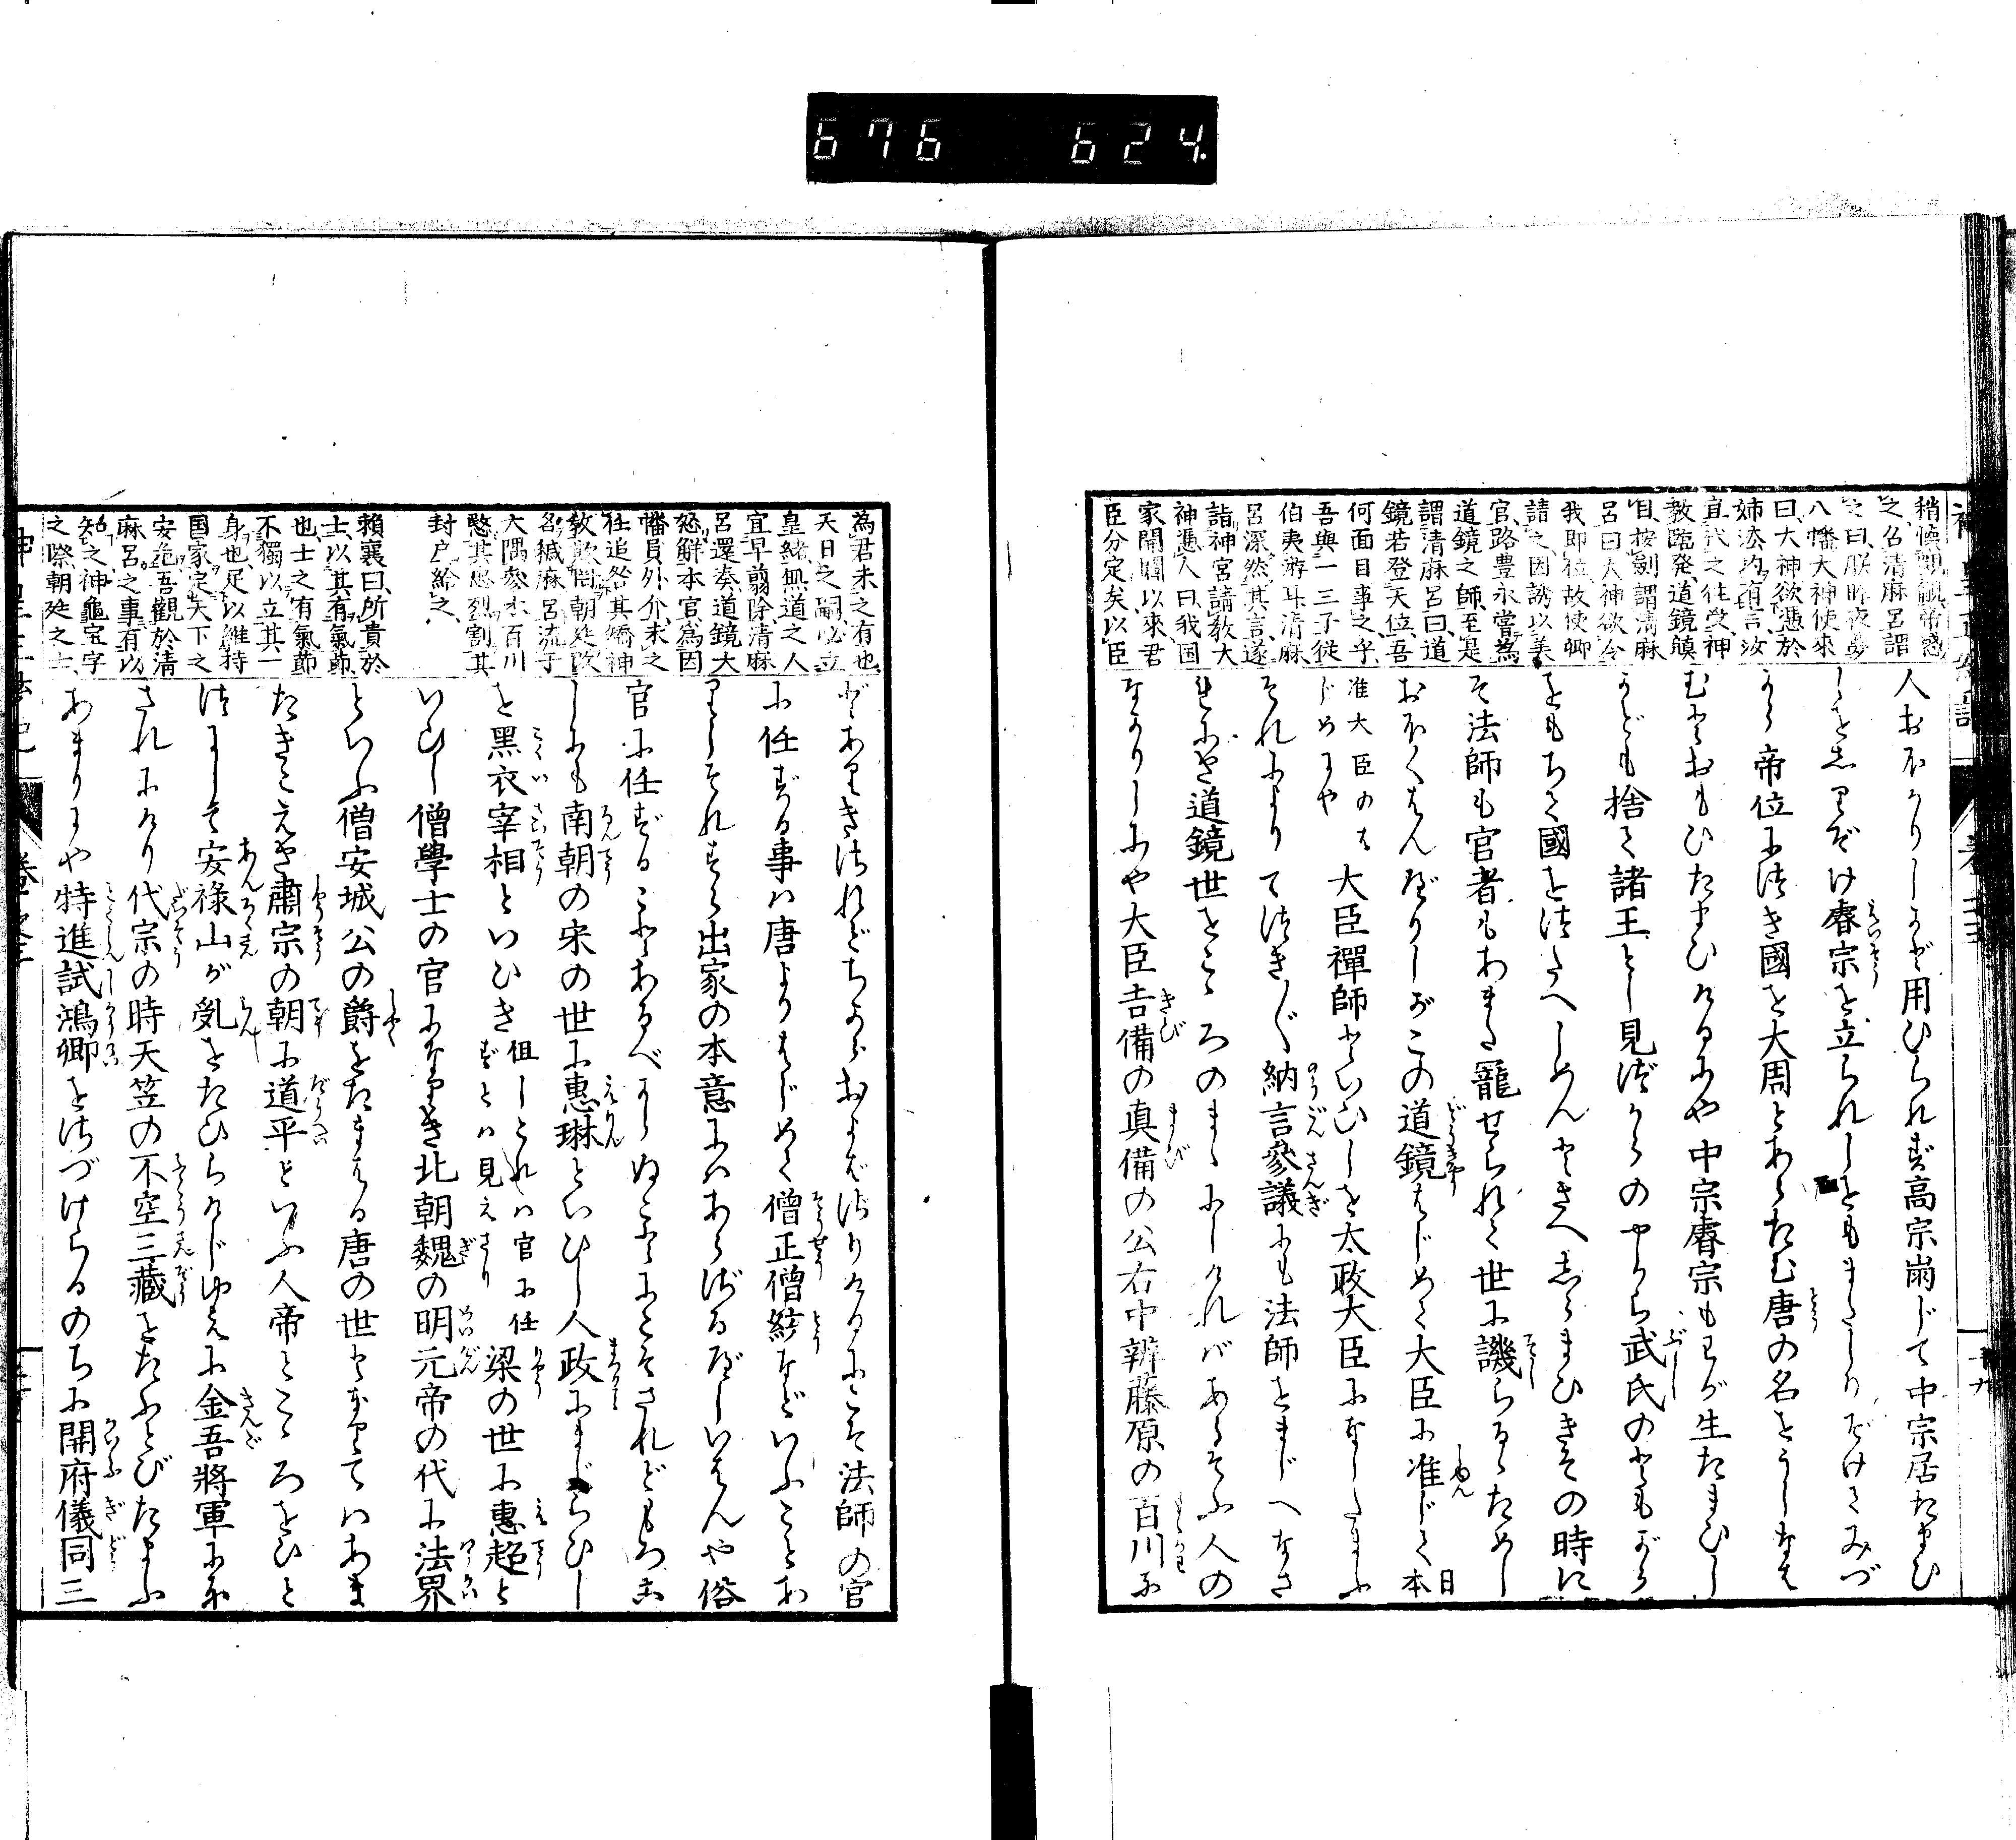 676 624.
稍懷覬覦帝惑
之、召清麻呂謂
之曰、朕昨夜夢
八幡大神使來
曰、大神欲憑於
姉法均有言、汝
宜代之往受神
教臨発、道鏡瞋
目、按劍謂清麻
呂曰大神欲令
我即位、故使卿
請之因誘以美
官、路豊永嘗為
道鏡之師、至是
謂清麻呂曰、道
鏡若登天位、吾
何面目事之乎、
吾與一二三子従
伯夷游耳、清麻
呂深然其言、遂
詣神宮請教大
神憑人曰、我国
家開闢以來、君
臣分定矣、以臣
人おほかりしかど用ひられず高宗崩じて中宗居たまひ
しをしりぞけ睿宗を立られしをもまたしりぞけてみづ
から帝位につき國を大周とあらたむ唐の名をうしなは
むとおもひたまひけるにや中宗睿宗もわが生たまひし
かども捨て諸王とし見づからのやから武氏のともがら
をもちて國をつたへしめんとさへしたまひきその時に
ぞ法師も官者もあまた寵せられて世に譏らるゝためし
おほくはんべりしがこの道鏡はじめて大臣に准じて日本
准大臣のはじめにや大臣禪師といひしを太政大臣になしたまふ
それによりてつぎ〱納言參議にも法師をまじへなさ
れにき道鏡世をこゝろのまゝにしければあらそふ人の
なかりしにや大臣吉備の真備の公右中辨藤原の百川な
為君未之有也、
天日之嗣、必立
皇緒、無道之人
宜早翦除、清麻
呂還奏、道鏡大
怒、解本官、為因
幡員外介、未之
任追咎其矯神
教欺罔朝廷、改
名穢麻呂流于
大隅參木百川
愍其忠烈割其
封户給之、
賴襄曰、所貴於
士、以其有氣節
也、士之有氣節
不獨以立其一
身也、足以維持
国家、定天下之
安危、吾觀於清
麻呂之事、有以
知之、神龜宝字
之際、朝廷之士、
どありきされどちからおよばざりけるにこそ法師の官
に任ずる事は唐よりはじめて僧正僧統などいふことあ
りしそれすら出家の本意にはあらざるべしいはんや俗
官に任ずることあるべからぬことにこそされどもろこ
しにも南朝の宋の世に惠琳といひし人政にまじらひし
を黑衣宰相といひき但しこれは官に任ずとは見えざり梁の世に惠超と
いひし僧學士の官になりき北朝魏の明元帝の代に法界
といふ僧安城公の爵をたまはる唐の世となりてはあま
たきこえき肅宗の朝に道平といふ人帝とこゝろをひと
つにして安祿山が乱をたひらげしゆゑに金吾將軍にな
されにけり代宗の時天竺の不空三藏をたふとびたまふ
あまりにや特進試鴻卿をさづけらるのちに開府儀同三